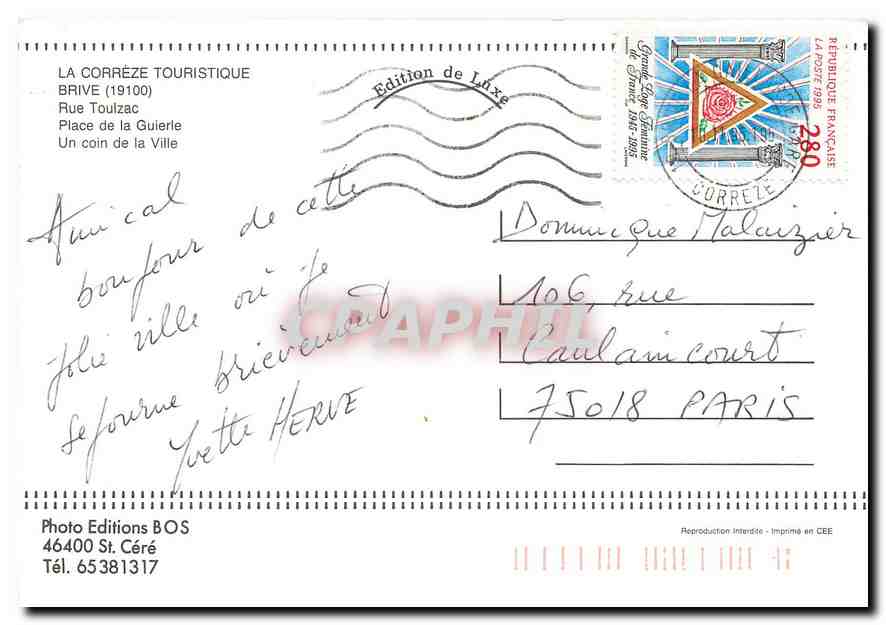 LA CORRÈZE TOURISTIQUE
BRIVE (19100)
Rue Toulzac
Place de la Guierle
Un coin de la Ville
Edition de Luxe
RÉPUBLIQUE FRANÇAISE
LA POSTE 1995
2,80
Grande Loge Féminine
de France 1945-1995
GARE
CORREZE
Amical
bonjour de cette
jolie ville où je
séjourne brièvement
Yvette HERVE
Dominique Malaizier
106, rue
Caulaincourt
75018 PARIS
CPAPHIL
Photo Editions BOS
46400 St. Céré
Tél. 65381317
Reproduction Interdite - Imprimé en CEE